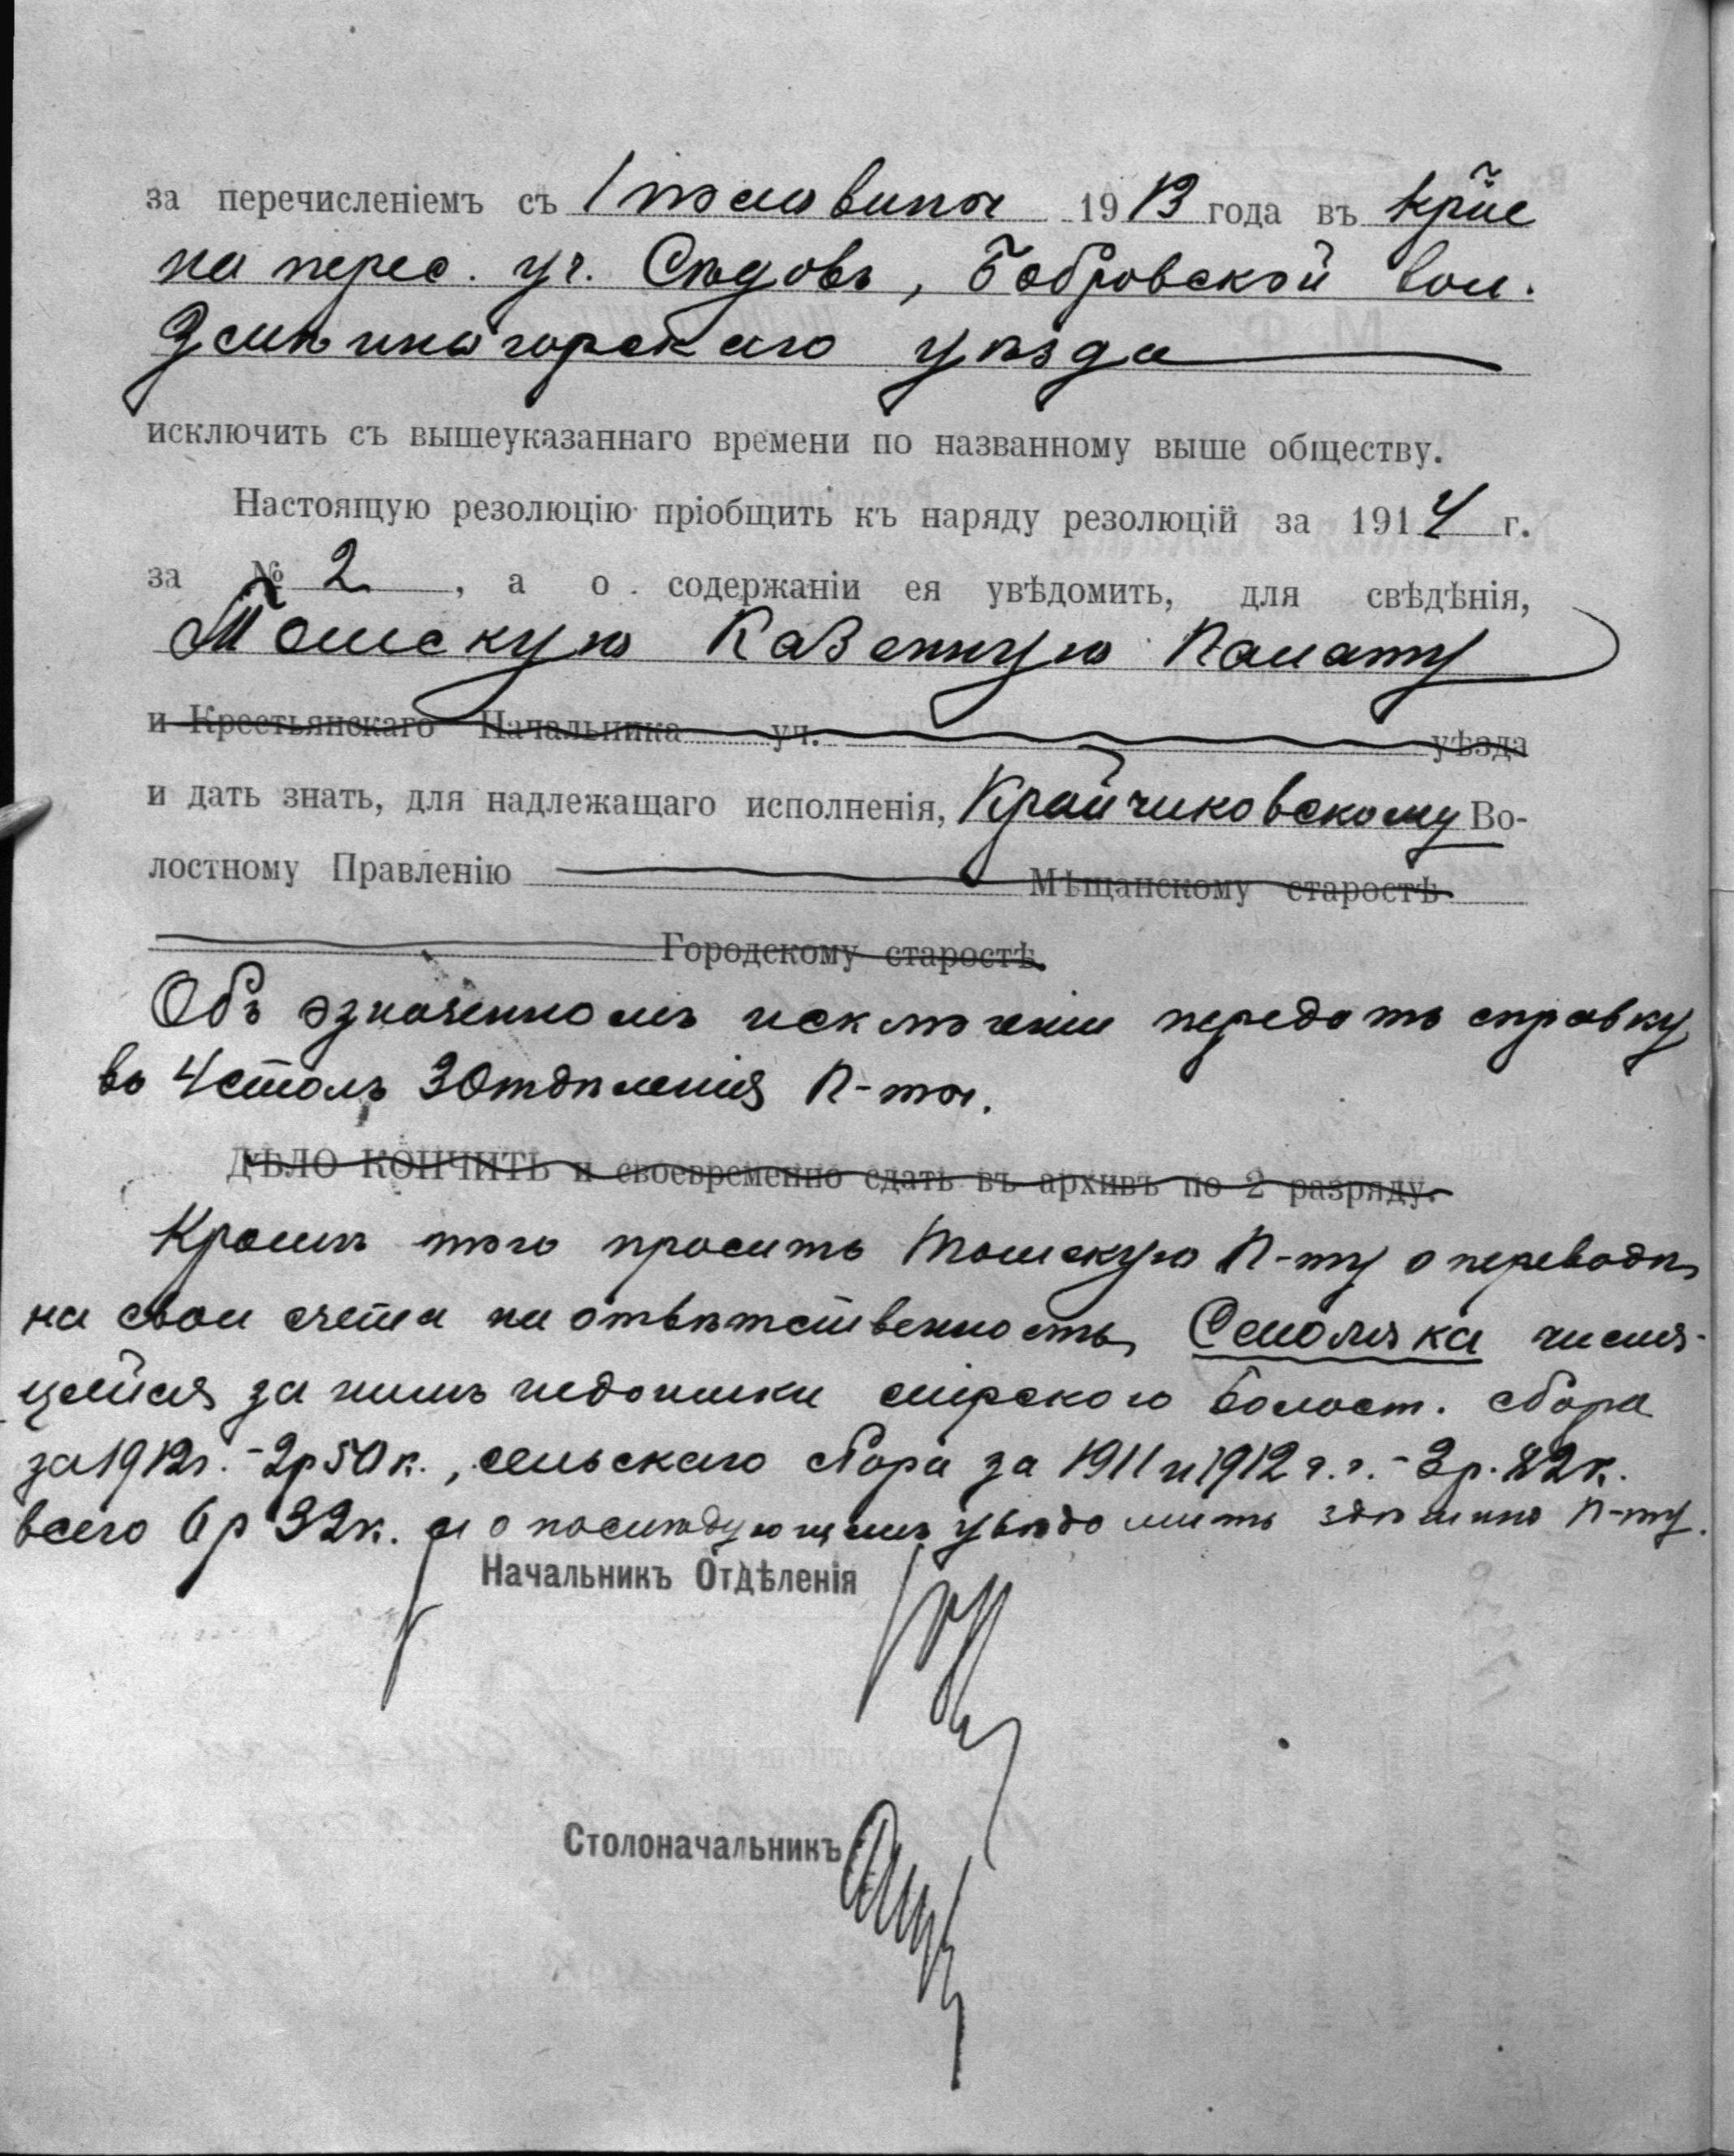 за перечисленіемъ съ 1 половины 1913 года въ кр̃не
на перес. уч. Сѣдовъ, Бобровской вол.
Змѣиногорскаго уѣзда
исключить съ вышеуказаннаго времени по названному выше обществу.
Настоящую резолюцію пріобщить къ наряду резолюцій за 1914 г.
за № 2, а о содержаніи ея увѣдомить, для свѣдѣнія,
Томскую Казенную Палату
и Крестьянскаго Начальника уч. уѣзда
и дать знать, для надлежащаго исполненія, Крайчиковскому Во-
лостному Правленію Мѣщанскому старостѣ
Городскому старостѣ.
Объ означенномъ исключеніи передать справку
въ 4 столъ 3 Отдѣленія П-ты.
ДѢЛО КОНЧИТЬ и своевременно сдать въ архивъ по 2 разряду.
Кромѣ того просить Томскую П-ту о переводѣ
на свои счета на отвѣтственность Семоляка числя-
щейся за нимъ недоимки мірского волост. сбора
за 1912 г. - 2 р 50 к., сельскаго сбора за 1911 и 1912 г.г. - 3 р. 82 к.
всего 6 р 32 к. и о послѣдующемъ увѣдомить здѣшнюю П-ту.
Начальникъ Отдѣленія
Столоначальникъ